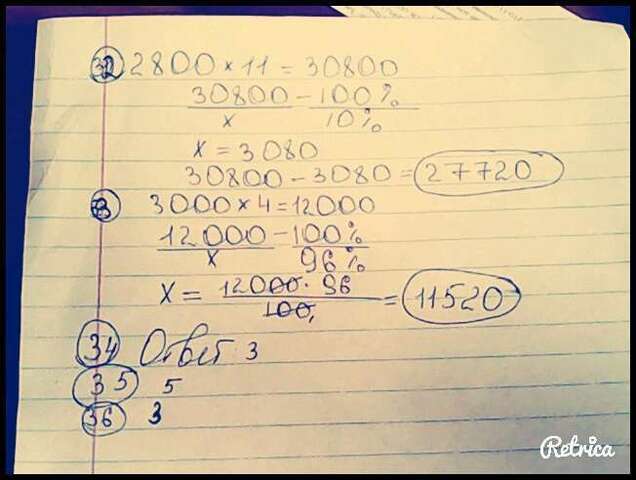 32 2800 × 11 = 30800
30800 – 100%
x 10%
x = 3080
30800 – 3080 = 27720
3000 × 4 = 12000
12000 – 100%
x 96%
x = 12000 · 96 / 100 = 11520
34 Ответ 3
35 5
36 3
Retrica